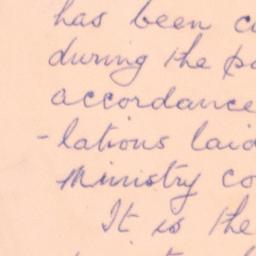 has been
during the
accordance
-lations laid
Ministry
It is the